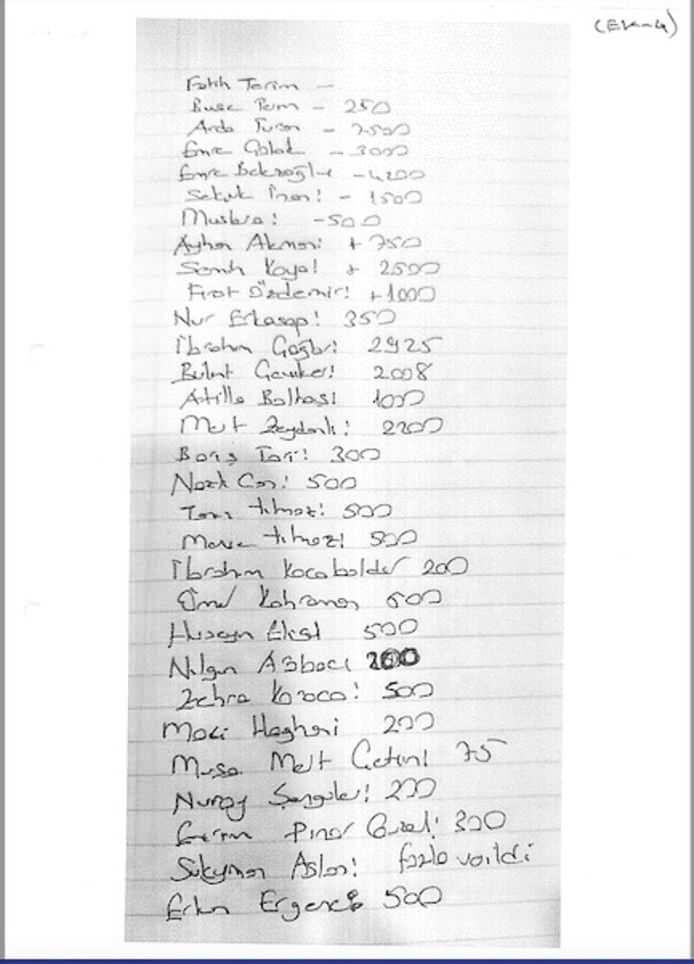 (Ek-4)
Fatih Terim -
Buse Terim - 250
Arda Turan - 7.500
Emre Çolak - 3000
Emre Belezoğlu - 4200
Selçuk İnan: - 1500
Muslera: -500
Ayhan Akman: + 750
Semih Kaya: + 2500
Fırat Özdemir: +1000
Nur Erkasap: 350
İbrahim Çağlar: 2925
Bülent Çeviker: 2008
Atilla Baltaş: 1000
Mert Zeydanlı: 2200
Barış Tari: 300
Nazlı Can: 500
Tanı Yılmaz: 500
Merve Yılmaz: 500
İbrahim Kocabalder 200
Ömer Kahraman 500
Hüseyin Eksi 500
Nilgün Ağbacı 200
Zehra Karaca: 500
Haghani 200
Musa Mert Çetin: 75
Nuray Şengüler: 200
Pınar Güzel: 300
Süleyman Aslan: fazla
Erkan Ergenç 500